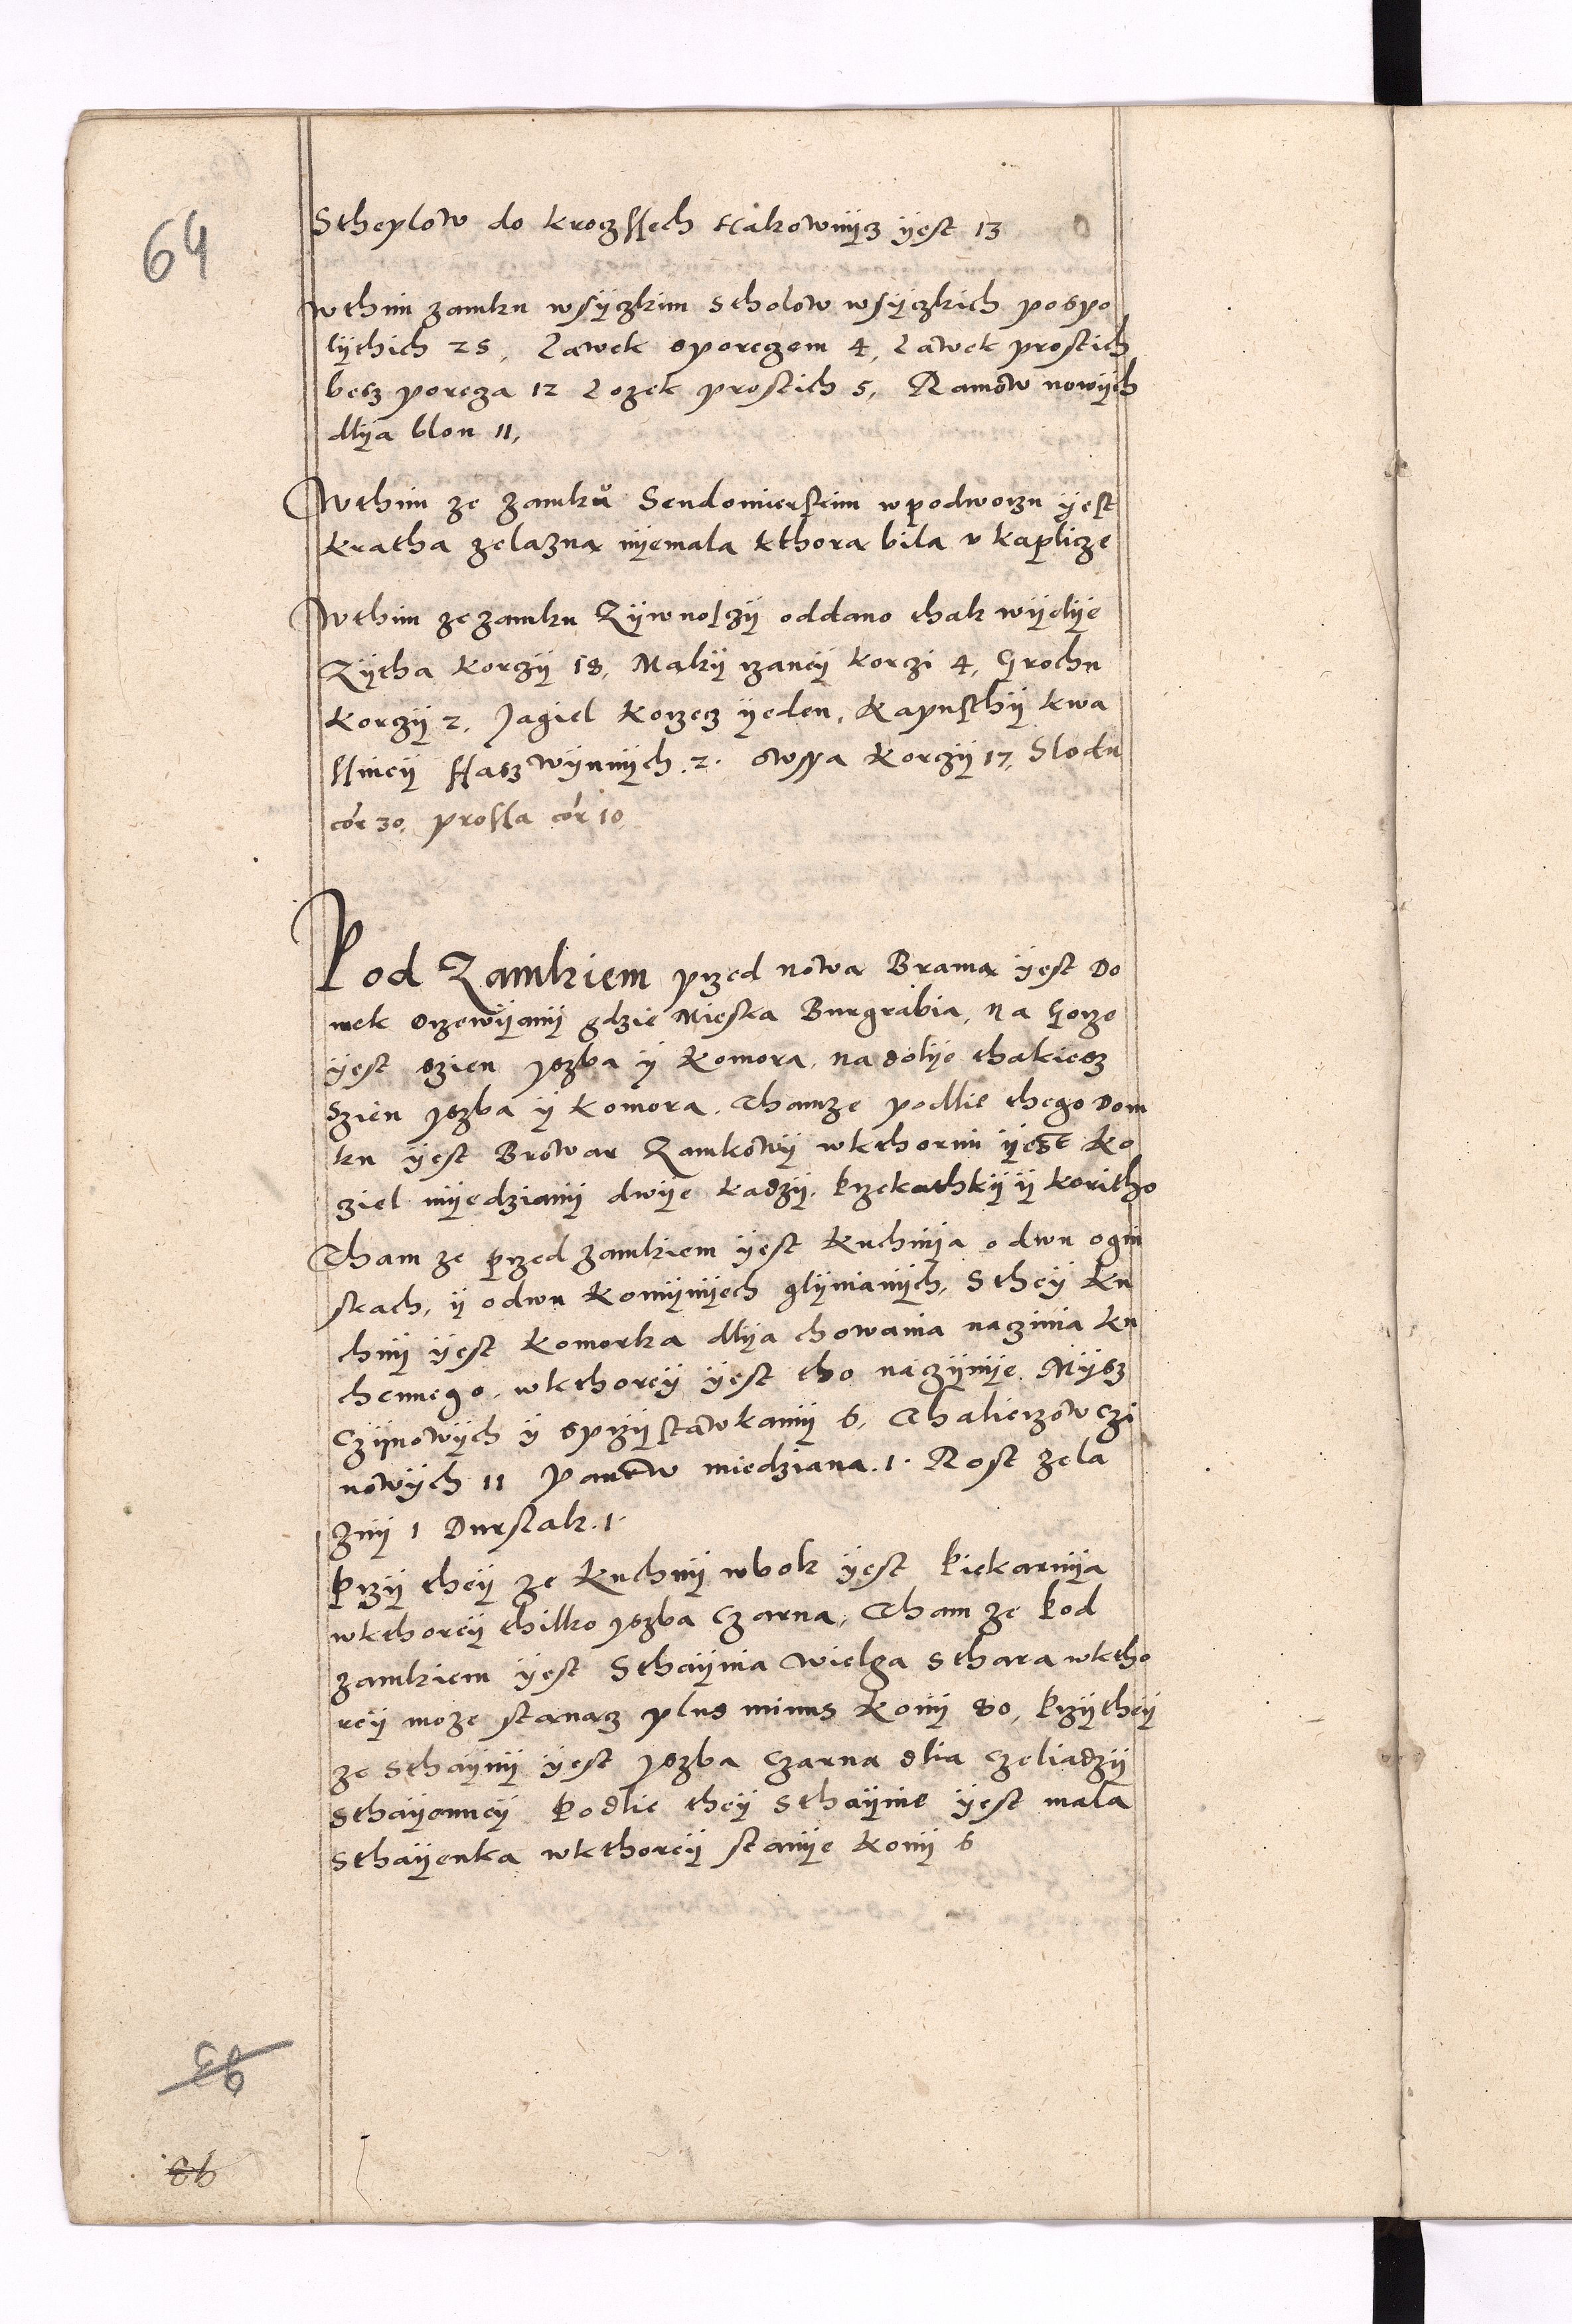 64
Stheplow do kroczssech Hakownÿcz ÿest 13
Wthim zamku wsÿczkim Stholow wsÿczkich pospo
lÿthich 25, Lawek sporęczem 4, Lawek prostich
besz poręcza 12 Lozek prostich 5, Ramow nowÿch
dlÿa blon 11,
Wthim ze zamkŭ Sendomierskim wpodworzu ÿest
Kratha zelazna nÿemala kthora bila v kaplicze
Wthim ze zamku Zÿwnosczÿ oddano thak wÿelÿe
Zÿtha korczÿ 18, Makÿ rzaneÿ korczi 4, Grochu
korczÿ 2, Jagiel korzecz ÿeden, Kapusthÿ kwa
ssneÿ ffasz wÿnnÿch .2. Owssa korczÿ 17, Slodu
cor 30, prossa cor 10
Pod Zamkiem przed nowa Brama ÿest Do
mek drzewÿanÿ gdzie Mieska Burgrabia, Na Gorze
ÿest szien yszba ÿ komora, na dolÿe thakiesz
szien yszba ÿ komora. Thamze podlie thego Dom
ku ÿest Browar Zamkowÿ wkthorim ÿest ko
ziel mÿedzianÿ dwÿe kadzÿ. Przekathkÿ ÿ koritho
Tham ze przed zamkiem ÿest kuchnÿa o dwu ogni
skach, ÿ odwu komÿnÿech glÿnianÿch, S theÿ ku
chnÿ ÿest komorka dlÿa chowania naczinia ku
chennego, wkthoreÿ ÿest tho naczÿnÿe Mÿsz
Czÿnowÿch ÿ sprzÿstawkamÿ 6, Thalierzow Czi
nowÿch 11 Panew miedziana .1. Rost zela
znÿ 1 Durslak .1.
Przÿ theÿ ze kuchnÿ wbok ÿest Piekarnÿa
wkthoreÿ thilko yszba Czarna, Tham ze Pod
zamkiem ÿest Sthaÿnia Wielga Sthara wktho
reÿ moze stanacz plus minus konÿ 80, Przÿtheÿ
ze sthaÿnÿ ÿest yszba Czarna dlia Czeliadzÿ
Sthaÿenneÿ Podlie theÿ Sthaÿnie ÿest mala
Sthaÿenka wkthoreÿ stanÿe konÿ 6